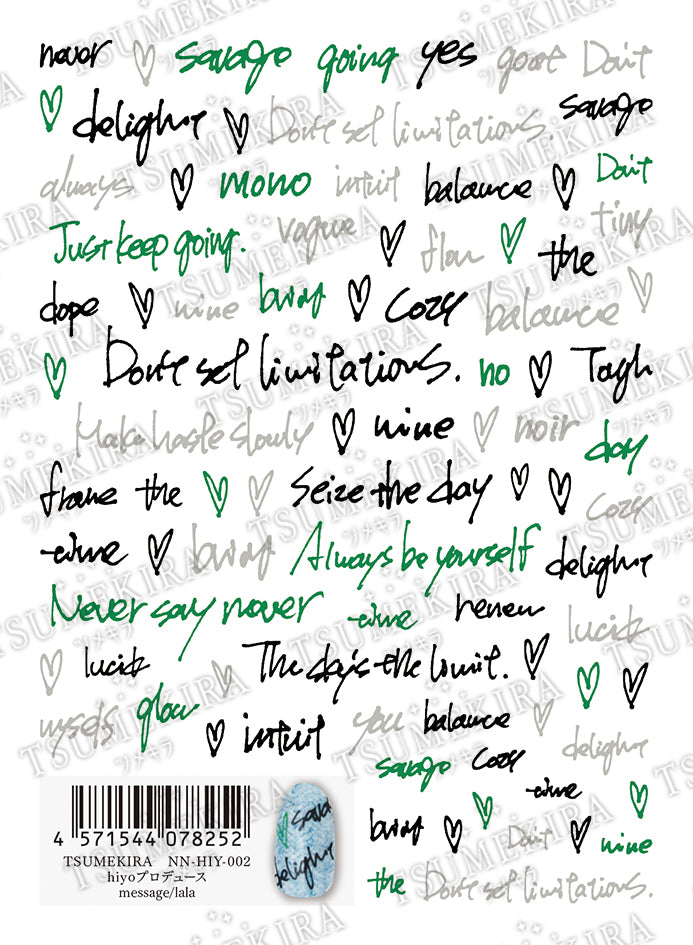 never ♡ savage going yes goat Don't
♡ delight ♡ Don't set limitations. savage
always ♡ mono intuit balance ♡ Don't
Just keep going. vague ♡ flow ♡ the tiny
dope ♡ nine ♡ cozy balance ♡
♡ Don't set limitations. no ♡ Tagh
Make haste slowly ♡ nine ♡ noir day
frame the ♡ ♡ Seize the day ♡ ♡ cozy
time ♡ Always be yourself delight
Never say never time renew lucid
♡ lucid ♡ The day's the limit. ♡ ♡ ♡
myself glow ♡ intuit you balance ♡ delight
savage cozy
time ♡ ♡
♡ Don't ♡ nine
the Don't set limitations.
4 571544 078252
TSUMEKIRA NN-HIY-002
hiyoプロデュース
message/lala
savage
delight
TSUMEKIRA
ツメキラ